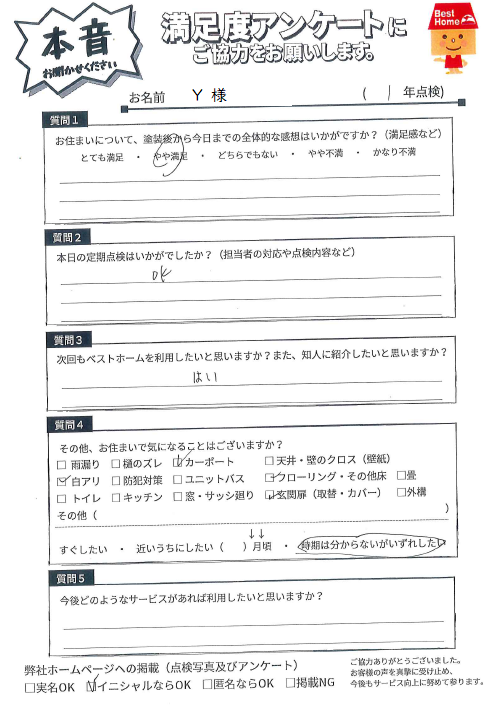 本音
お聞かせください
満足度アンケートに
ご協力をお願いします。
Best Home
お名前 Y 様 ( 1 年点検)
質問1
お住まいについて、塗装後から今日までの全体的な感想はいかがですか？（満足感など）
とても満足 ・ やや満足 ・ どちらでもない ・ やや不満 ・ かなり不満
質問2
本日の定期点検はいかがでしたか？（担当者の対応や点検内容など）
OK
質問3
次回もベストホームを利用したいと思いますか？また、知人に紹介したいと思いますか？
はい
質問4
その他、お住まいで気になることはございますか？
☐ 雨漏り ☐ 樋のズレ ☑ カーポート ☐ 天井・壁のクロス（壁紙）
☑ 白アリ ☐ 防犯対策 ☐ ユニットバス ☑ フローリング・その他床 ☐ 畳
☐ トイレ ☐ キッチン ☐ 窓・サッシ廻り ☑ 玄関扉（取替・カバー） ☐ 外構
その他（ ）
↓↓
すぐしたい ・ 近いうちにしたい（ ）月頃 ・ 時期は分からないがいずれしたい
質問5
今後どのようなサービスがあれば利用したいと思いますか？
弊社ホームページへの掲載（点検写真及びアンケート）
☐実名OK ☑イニシャルならOK ☐匿名ならOK ☐掲載NG
ご協力ありがとうございました。
お客様の声を真摯に受け止め、
今後もサービス向上に努めて参ります。